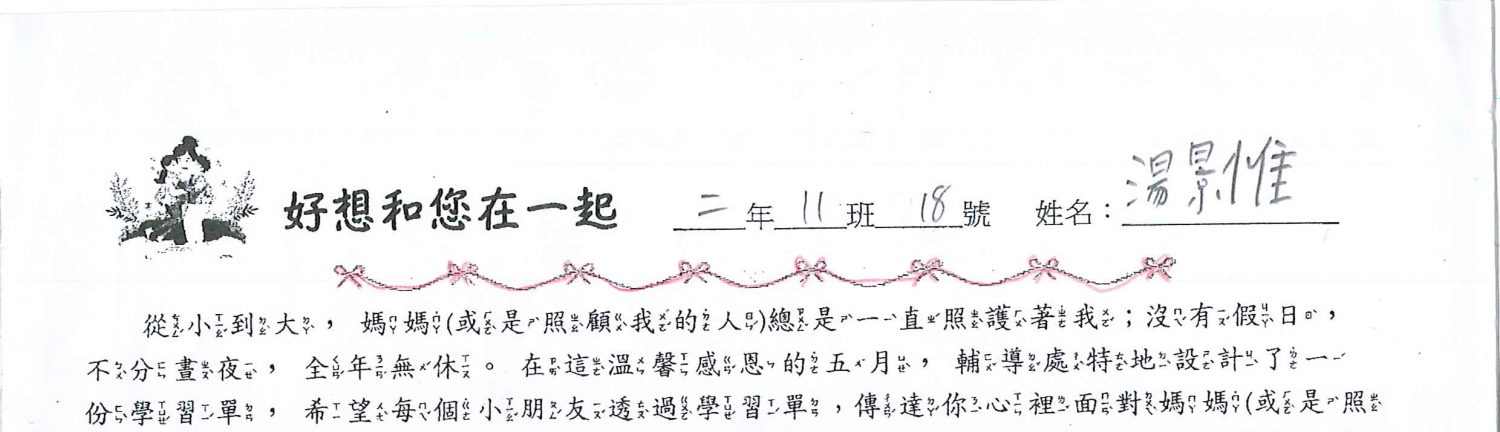 好想和您在一起 二年11班18號 姓名：湯景惟
從小到大，媽媽(或是照顧我的人)總是一直照護著我；沒有假日，
不分晝夜，全年無休。在這溫馨感恩的五月，輔導處特地設計了一
份學習單，希望每個小朋友透過學習單，傳達你心裡面對媽媽(或是照